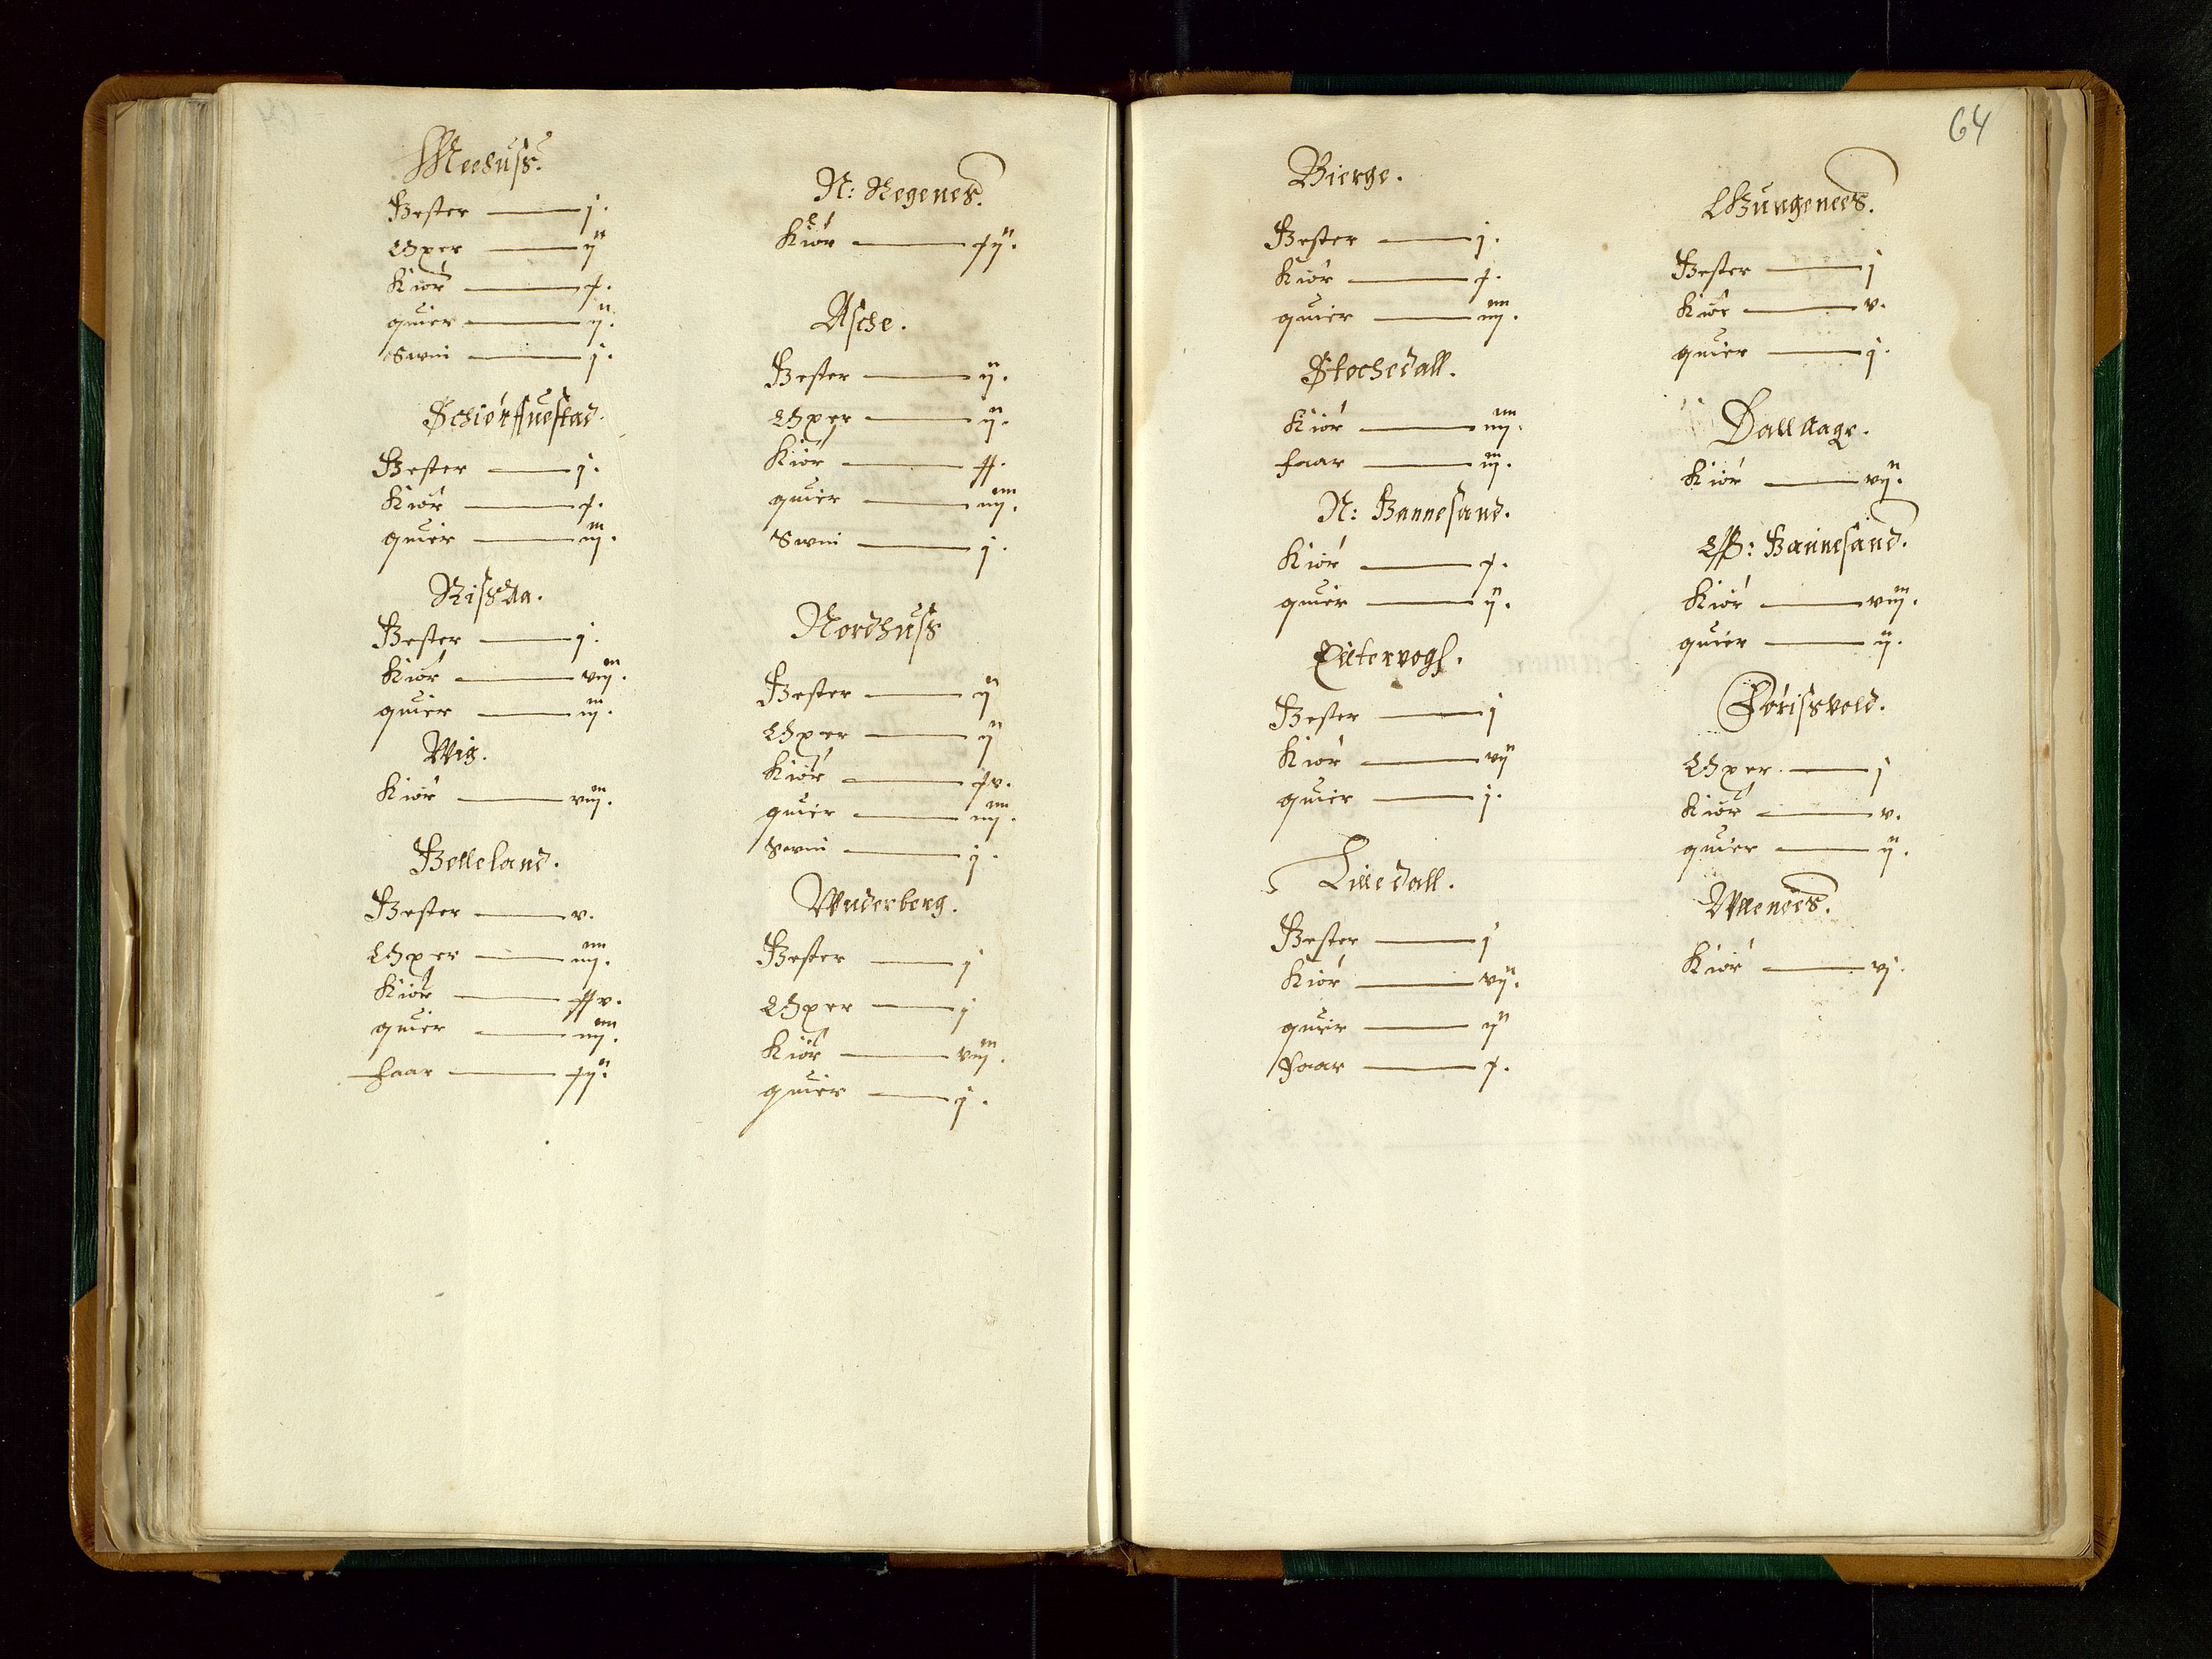 Meehuss.
Hester — j.
Øxer — ij
Kiør — x.
quier — ij.
Swin — j.
Schiørffuestad.
Hester — j.
Kiør — x.
quier — iij.
Rissaa.
Hester — j.
Kiør — viij.
quier — iij.
Wig.
Kiør — viij.
Helleland.
Hester — v.
Øxer — iiij.
Kiør — xxv.
quier — iiij.
faar — xij.
N: Regenes.
Kiør — xij.
Asche.
Hester — ij.
Øxer — ij.
Kiør — xx.
quier — iiij.
Swin — j.
Nordhuss
Hester — ij
Øxer — ij
Kiør — xv.
quier — iiij.
Swin — j.
Wnderberg.
Hester — j
Øxer — j
Kiør — viij.
quier — j.
64
Bierge.
Hester — j.
Kiør — x.
quier — iiij.
Stochedall.
Kiør — iiij.
faar — iij.
N: Hannesand.
Kiør — x.
quier — ij.
Hester — j
Kiør — vij
quier — j.
Lilledall.
Hester — j
Kiør — vij.
quier — ij
Faar — x.
Øungenees.
Hester — j
Kiør — v.
quier — j.
Dallaage.
Kiør — vij.
Øff: Hannesand.
Kiør — viij.
quier — ij.
Førissvold.
Øxer — j
Kiør — v.
quier — ij.
Wllenees.
Kiør — vj.